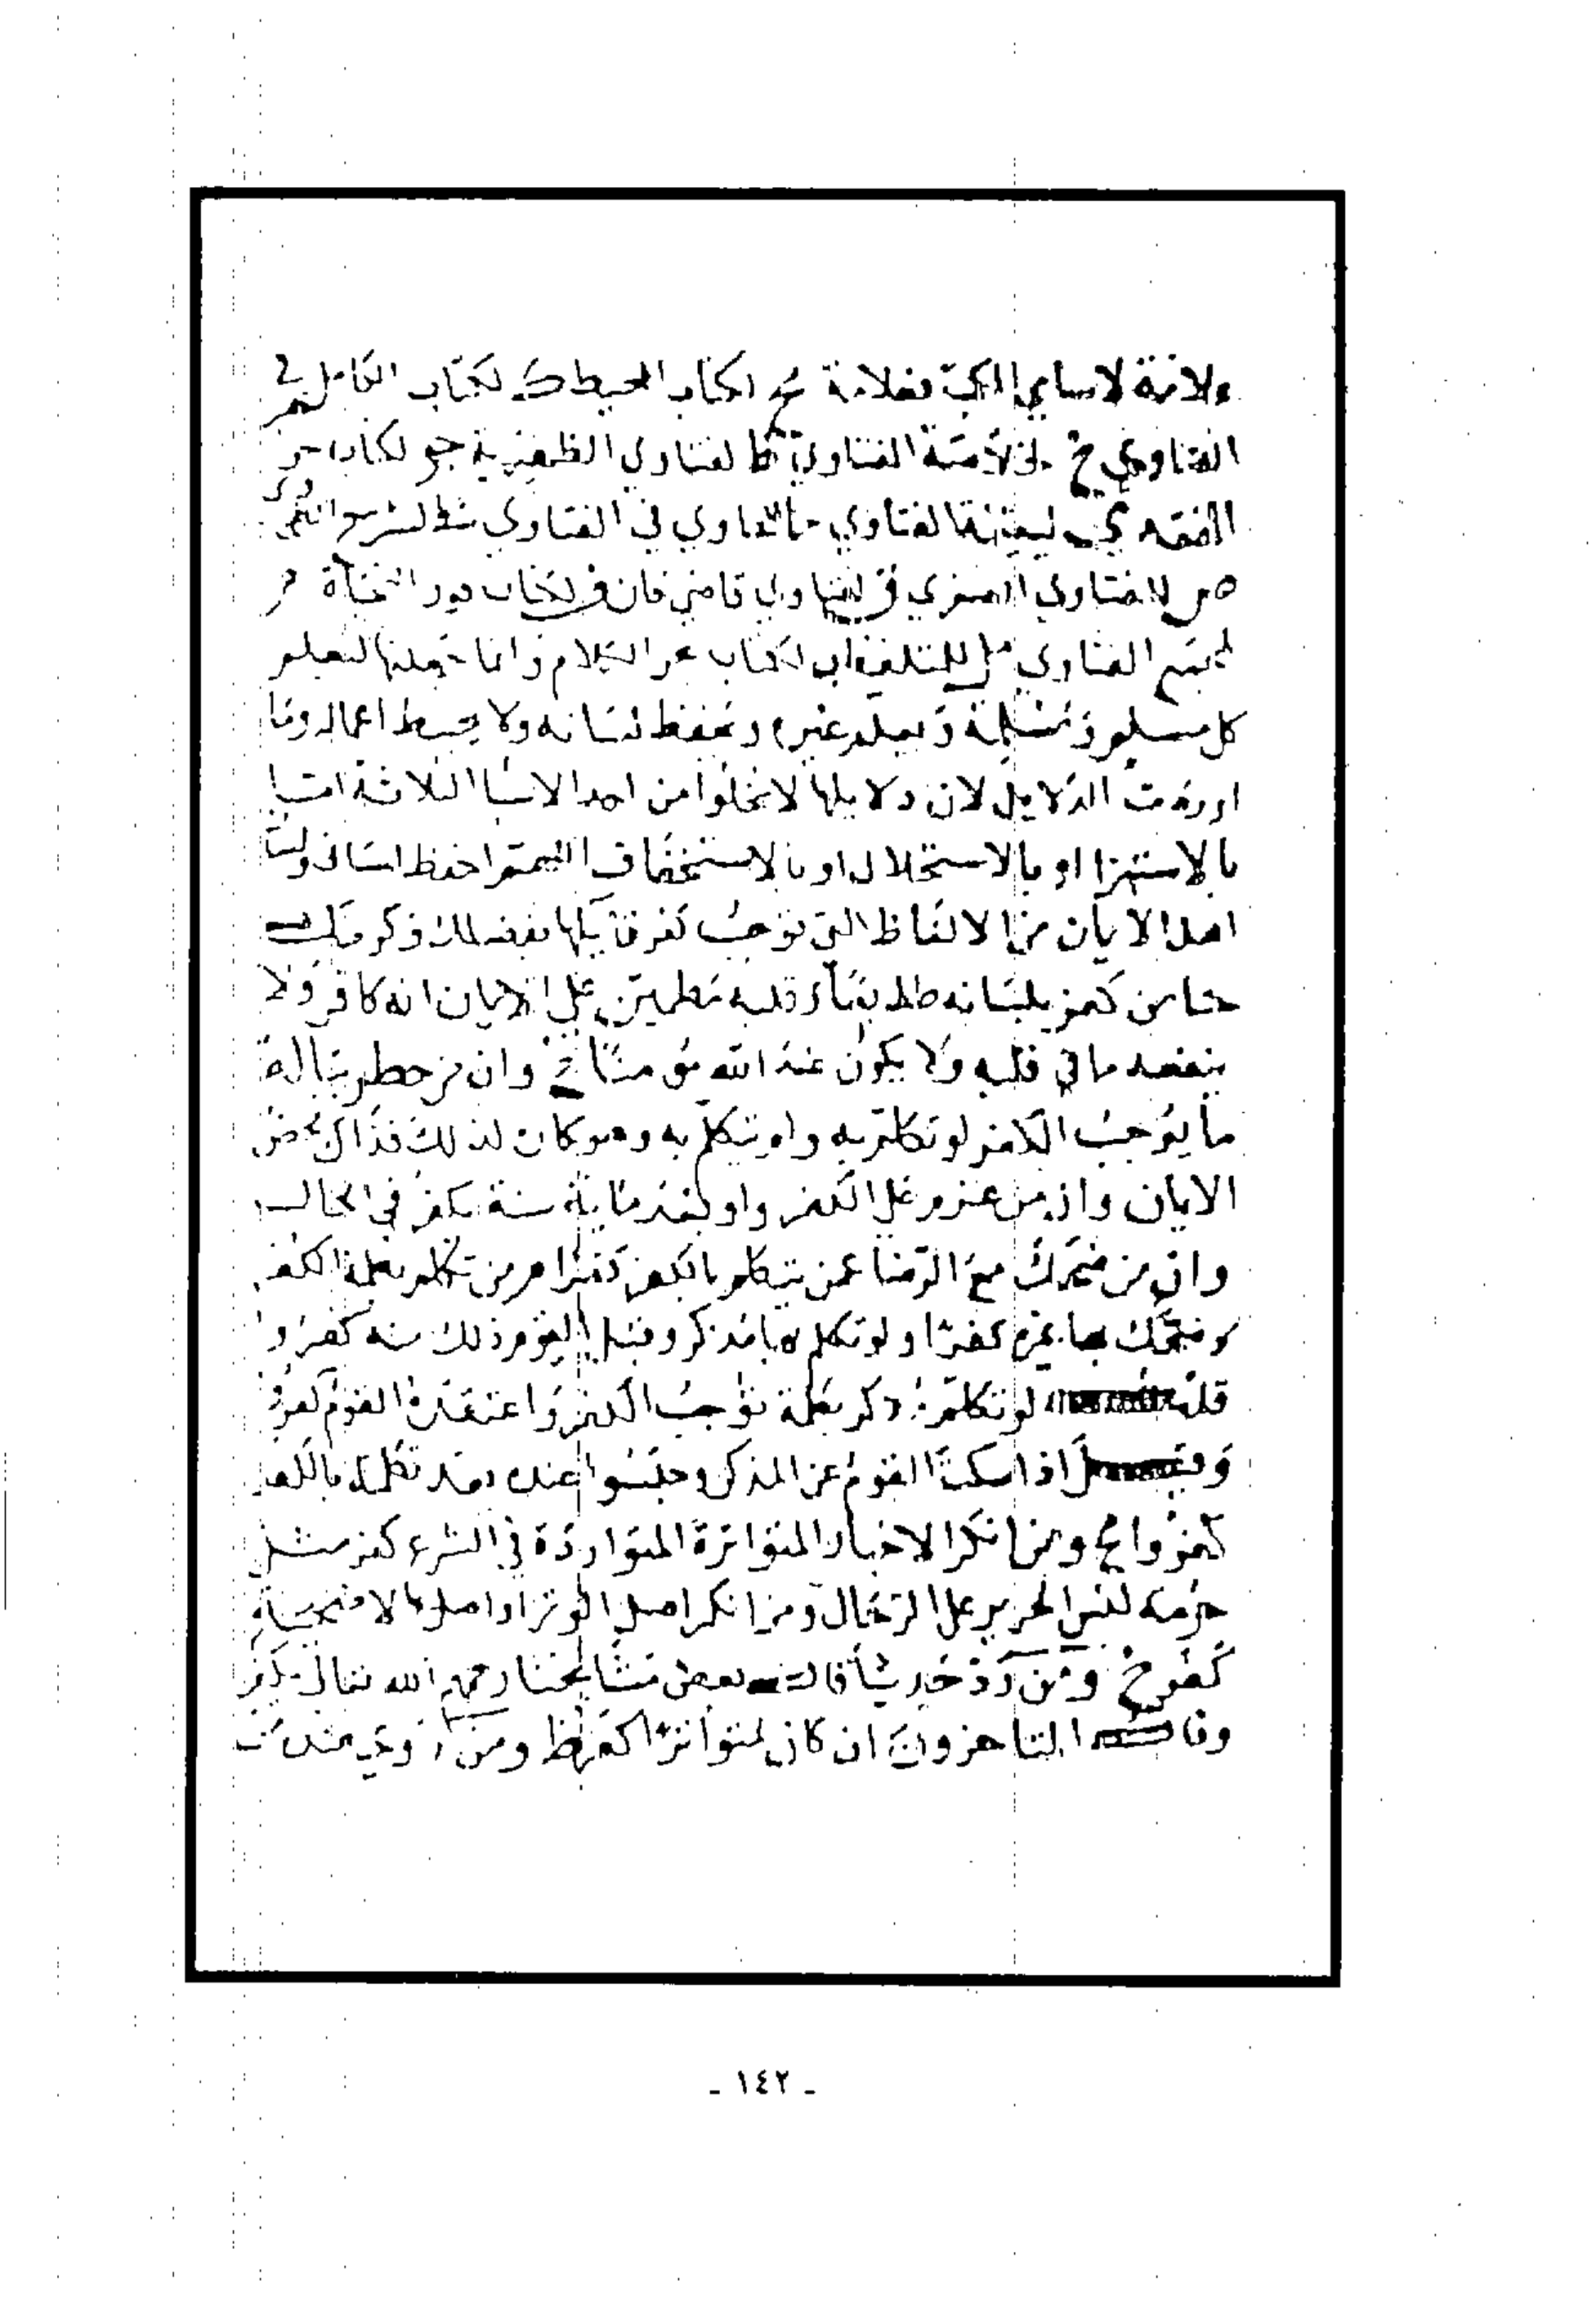 علامة لاسامي الكتب فعلامة مح لكتاب المحيط ك لكتاب الكامل في
الفتاوي خ لخلاصة الفتاوي ظ لفتاوي الظهيرية جو لكتاب
الفقه ي ليتيمة الفتاوي حا للحاوي في الفتاوي شط لشرح
ص للفتاوي الصغري ق لفتاوي قاضي خان ف لكتاب فور النجاة
لمجمع الفتاوي للمتلفقات لكتاب بحر الكلام وانما جمعتها ليعلم
كل مسلم ومسلمة ويعلم غيره ويحفظ لسانه ولا يحبط اعماله وما
اوردت الدلايل لان دلايلها لا تخلوا من احد الاشيا الثلاثة اما
بالاستهزا او بالاستحلال او بالاستخفاف اللهم احفظ لساني ولسان
اهل الايمان من الالفاظ التي توجب كفر قايلها بفضلك وكرمك
حا من كفر بلسانه طايعا وقلبه مطمين علي الايمان انه كافر ولا
ينفعه ما في قلبه ولا يكون عند الله مومنا وان من خطر بباله
ما يوجب الكفر لو تكلم به ولم يتكلم به وهو كاره لذلك فذاك محض
الايمان وان من عزم علي الكفر ولو بعد ماية سنة يكفر في الحال
وان من ضحك مع الرضا عمن يتكلم بالكفر كفر ومن تكلم بكلمة الكفر
وضحك بها غيره كفرا ولو تكلم بها مذكر وقبل القوم ذلك منه كفروا
قلت لو تكلم مذكر بكلمة توجب الكفر واعتقده القوم كفروا
وقيل اذا سكت القوم عن المذكر وجلسوا عنده بعد تكلمه بالكفر
كفروا مح ومن انكر الاخبار المتواترة المتواردة في الشرع كفر مثل
حرمة لبس الحرير على الرجال ومن انكر اصل الوتر او اصل الاضحية
كفر خ ومن رد حديثا قال بعض مشايخنا رحمهم الله تعالى يكفر
وقال المتاخرون ان كان متواترا كفر ظ ومن روي عنده
- ١٤٢ -